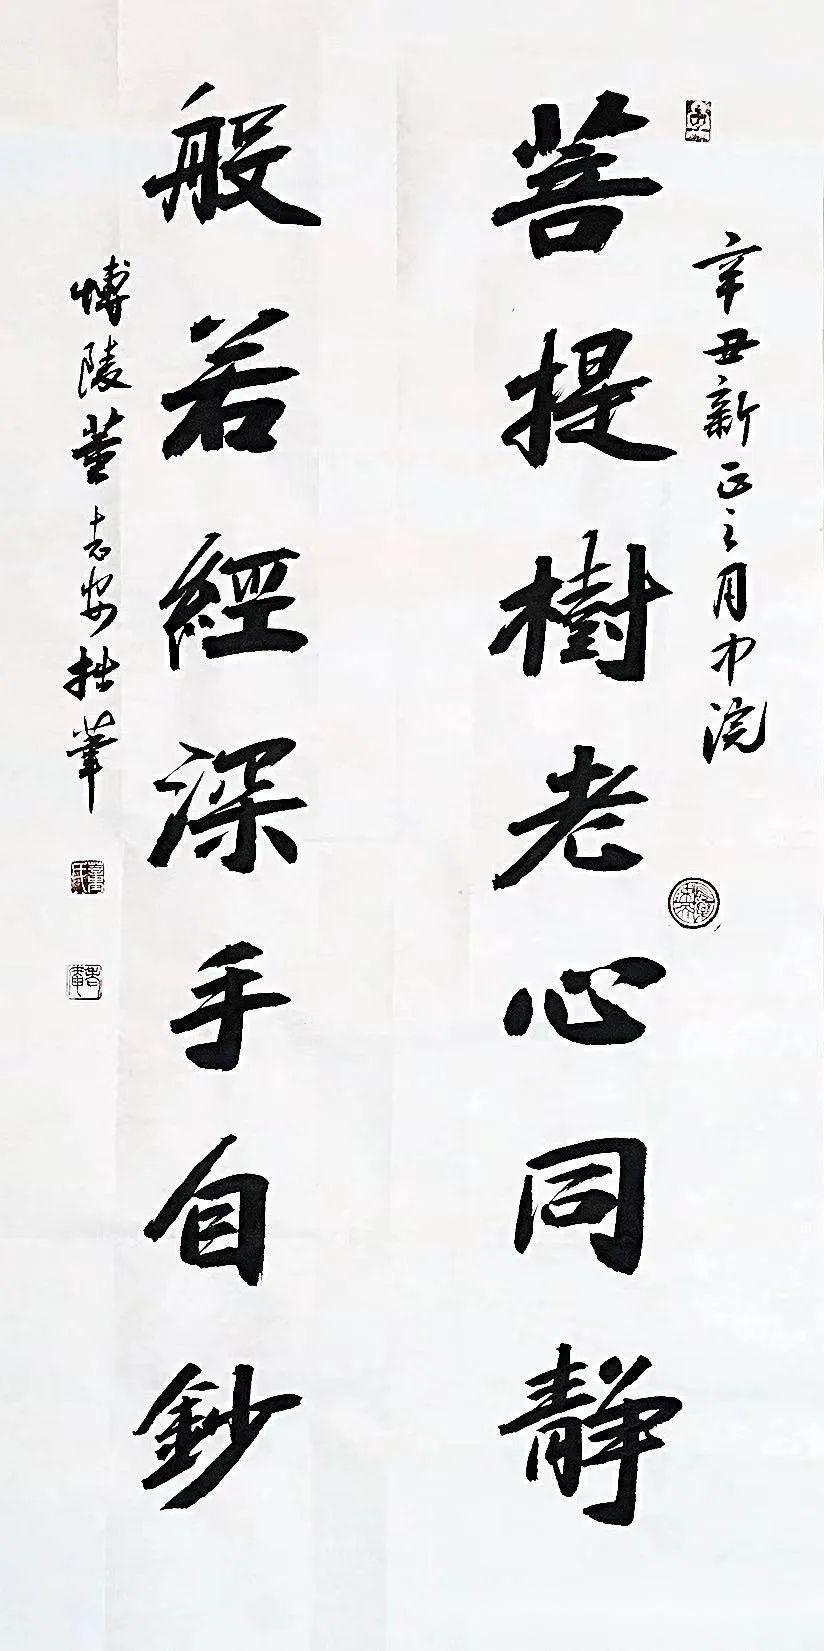 辛丑新正之月中浣
菩提樹老心同静
般若經深手自鈔
博陵董志安拙筆